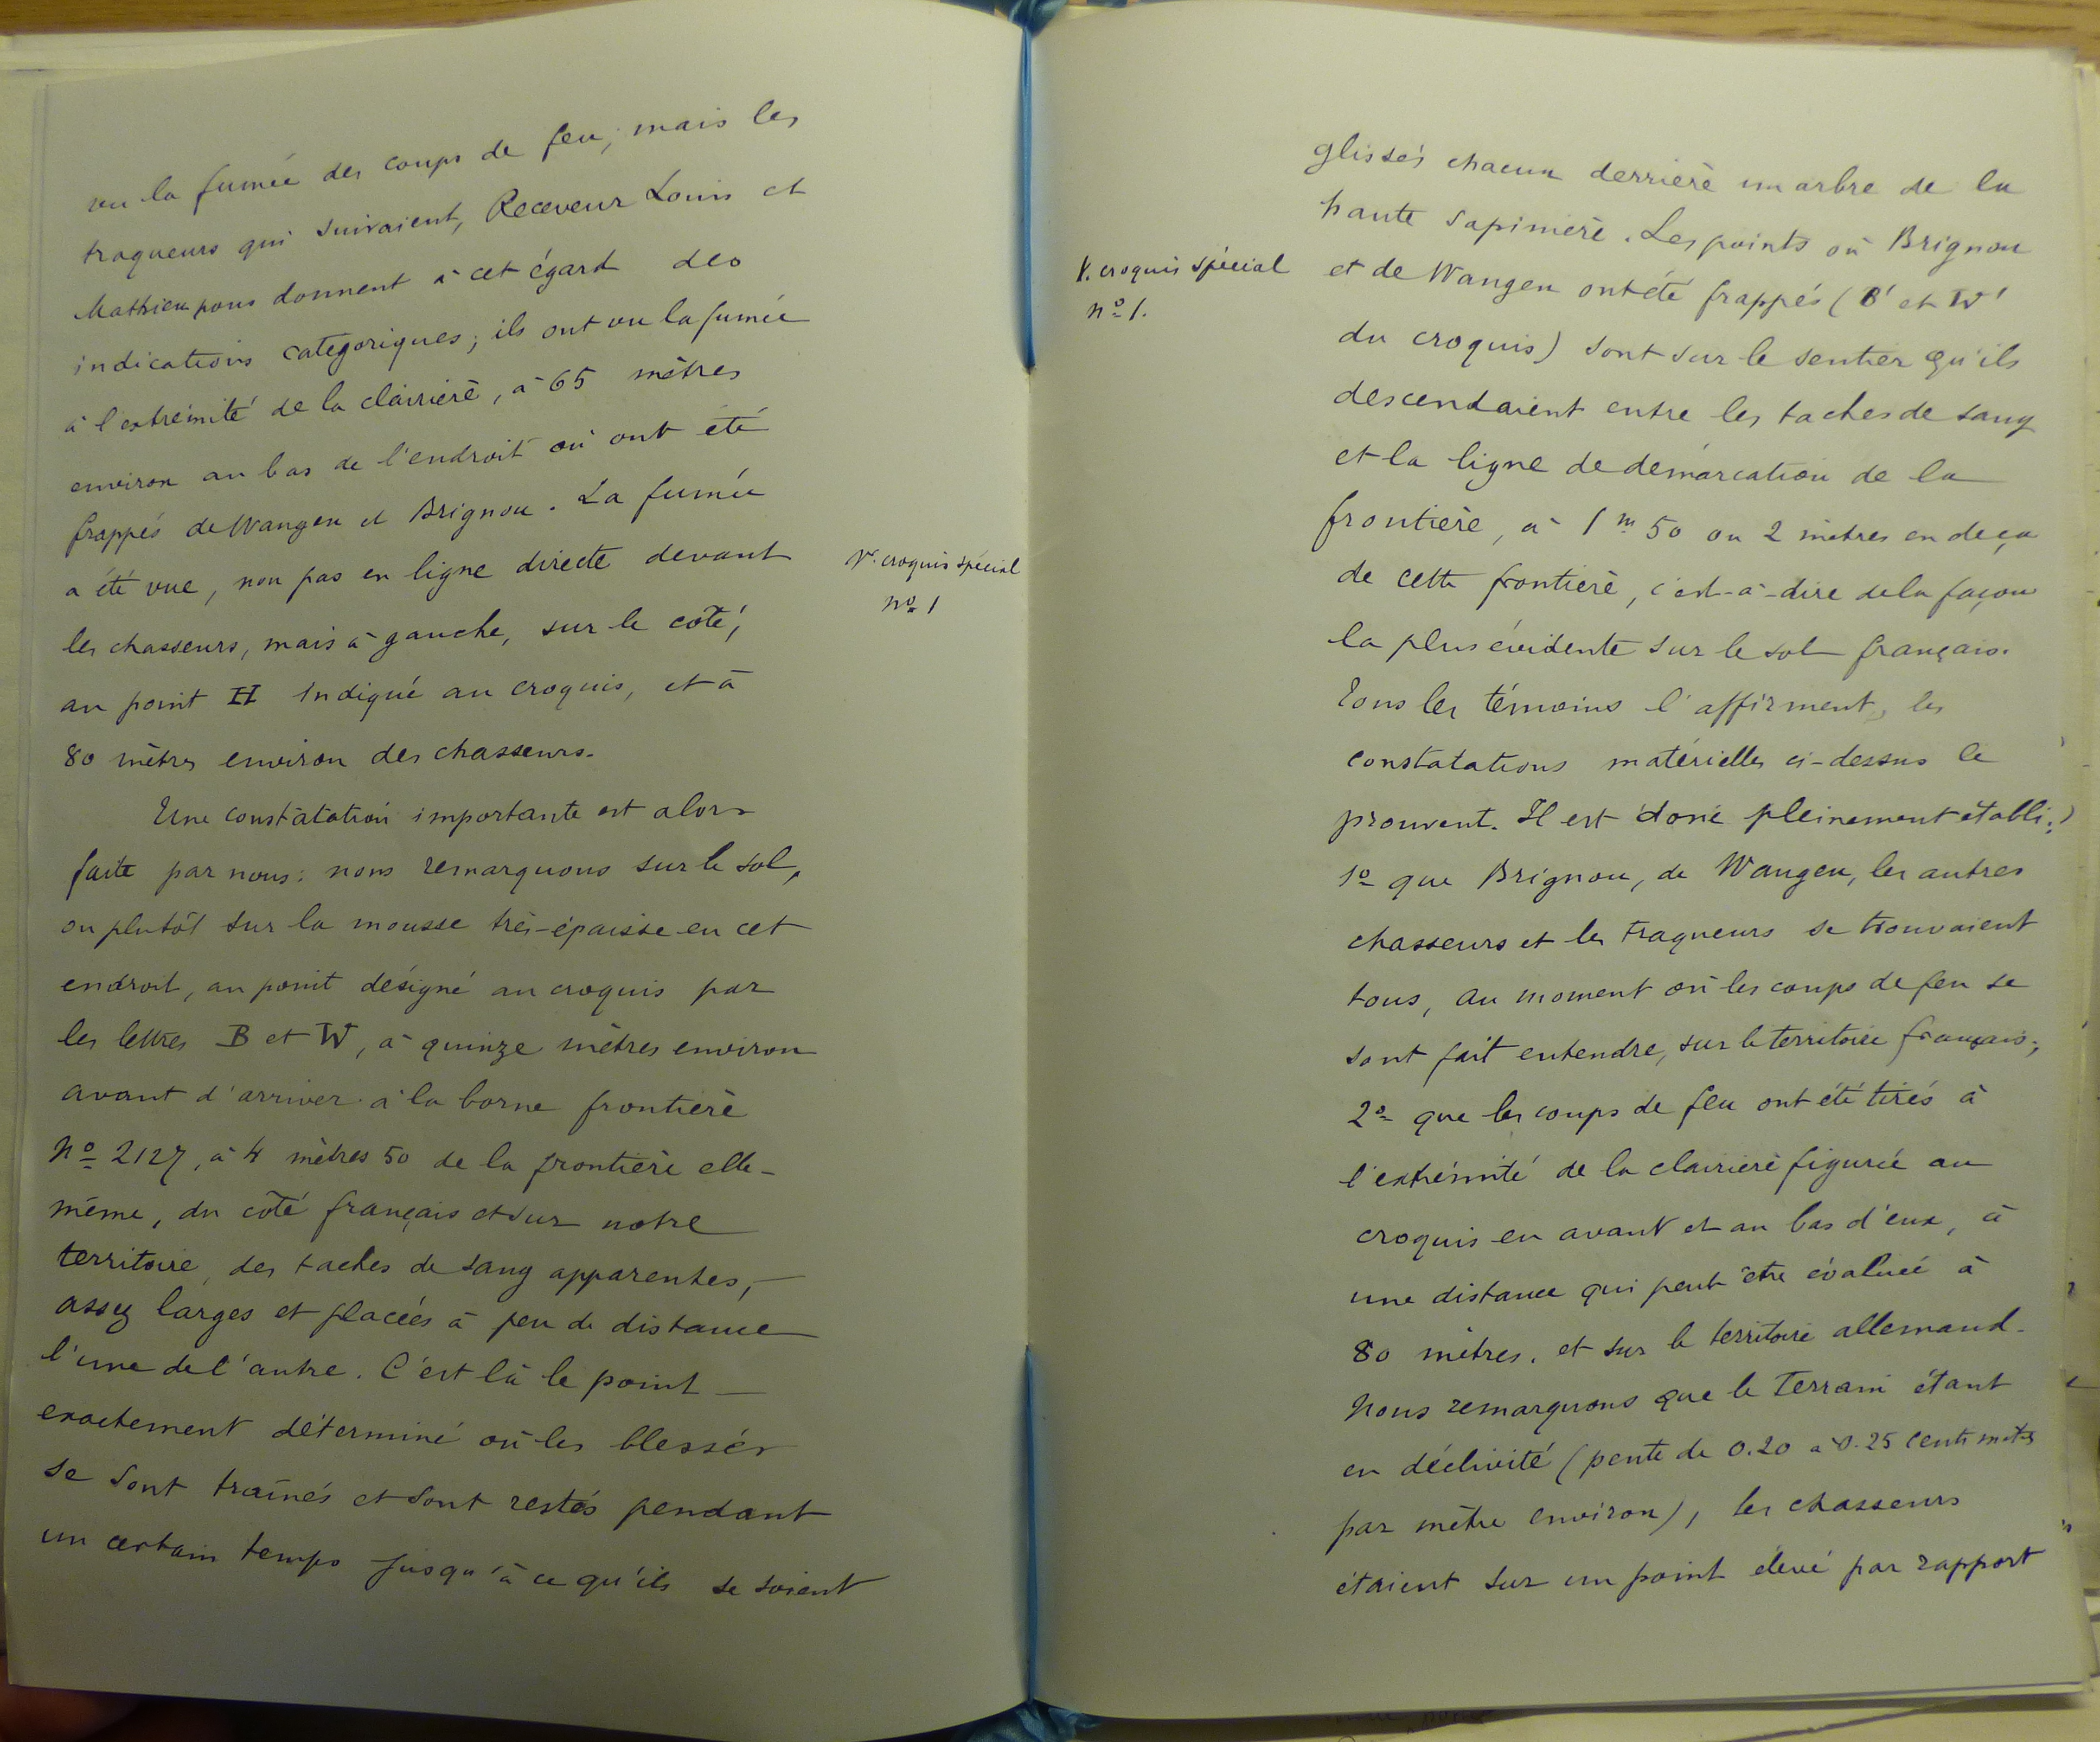 vu la fumée des coups de feu, mais les
traqueurs qui suivaient, Receveur Louis et
Mathieu nous donnent à cet égard des
indications catégoriques; ils ont vu la fumée
à l'extrémité de la clairière, à 65 mètres
environ au bas de l'endroit où ont été
frappés de Wangen et Brignou. La fumée
a été vue, non pas en ligne directe devant
les chasseurs, mais à gauche, sur le côté,
V. croquis spécial
nº 1
au point H indiqué au croquis, et à
80 mètres environ des chasseurs.
Une constatation importante est alors
faite par nous: nous remarquons sur le sol,
ou plutôt sur la mousse très-épaisse en cet
endroit, au point désigné au croquis par
les lettres B et W, à quinze mètres environ
avant d'arriver à la borne frontière
Nº 2127, à 4 mètres 50 de la frontière elle-
même, du côté français et sur notre
territoire, des taches de sang apparentes,
assez larges et placées à peu de distance
l'une de l'autre. C'est là le point
exactement déterminé où les blessés
se sont traînés et sont restés pendant
un certain temps jusqu'à ce qu'ils se soient
glissés chacun derrière un arbre de la
haute sapinière. Les points où Brignou
V. croquis spécial
nº 1.
et de Wangen ont été frappés (B' et W'
du croquis) sont sur le sentier qu'ils
descendaient entre les taches de sang
et la ligne de démarcation de la
frontière, à 1 m 50 ou 2 mètres en deça
de cette frontière, c'est-à-dire de la façon
la plus évidente sur le sol français.
Tous les témoins l'affirment, les
constatations matérielles ci-dessus le
prouvent. Il est donc pleinement établi:
1º que Brignou, de Wangen, les autres
chasseurs et les traqueurs se trouvaient
tous, au moment où les coups de feu se
sont fait entendre, sur le territoire français;
2º que les coups de feu ont été tirés à
l'extrémité de la clairière figurée au
croquis en avant et au bas d'eux, à
une distance qui peut être évaluée à
80 mètres, et sur le territoire allemand.
Nous remarquons que le terrain étant
en déclivité (pente de 0.20 à 0.25 centimètres
par mètre environ), les chasseurs
étaient sur un point élevé par rapport